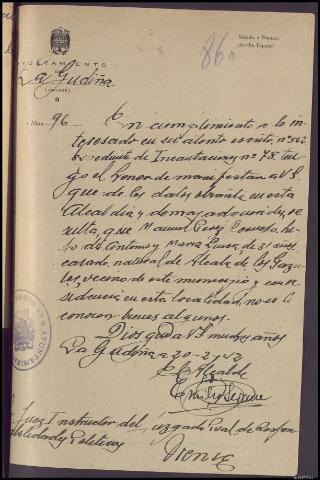 Saludo a Franco:
¡Arriba España!
860
AYUNTAMIENTO
La Gudiña
(ORENSE)
Núm. 96
En cumplimiento a lo in-
teresado en su atento escrito, nº 562
Expediente de Incautaciones nº 75, ten-
go el honor de manifestar a V.S.
que de los datos obrantes en esta
Alcaldia y demas adquiridos, re-
sulta, que Manuel Perez Consuelo, hi-
jo de Antonio y Maria Luisa, de 31 años
casado, natural de Alcala de los Gazu-
les, vecino de este municipio y con re-
sidencia en esta localidad, no se le
conocen bienes algunos.
Dios guarde a V.S. muchos años
La Gudiña a 20-2-942
El Alcalde
Juez Instructor del Juzgado Pval de Respon-
sabilidades Politicas
Orense